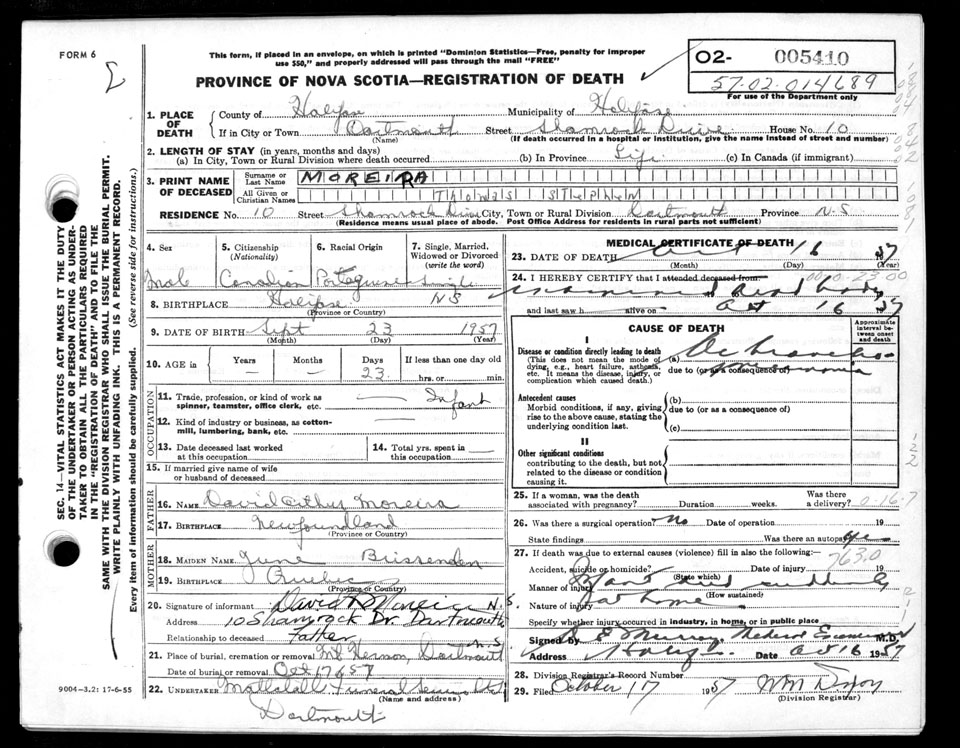 FORM 6
This form, if placed in an envelope, on which is printed "Dominion Statistics—Free, penalty for improper
use $50," and properly addressed will pass through the mail "FREE"
PROVINCE OF NOVA SCOTIA—REGISTRATION OF DEATH
02- 005410
57-02-014689
For use of the Department only
1. PLACE OF DEATH
County of Halifax Municipality of Halifax
If in City or Town Dartmouth Street Shamrock Drive House No. 10
(Name) (If death occurred in a hospital or institution, give the name instead of street and number)
2. LENGTH OF STAY (in years, months and days)
(a) In City, Town or Rural Division where death occurred (b) In Province Life (c) In Canada (if immigrant)
3. PRINT NAME OF DECEASED
Surname or Last Name MOREIRA
All Given or Christian Names Thomas Stephen
RESIDENCE No. 10 Street Shamrock Drive City, Town or Rural Division Dartmouth Province N-S
(Residence means usual place of abode. Post Office Address for residents in rural parts not sufficient)
4. Sex
5. Citizenship (Nationality)
6. Racial Origin
7. Single, Married, Widowed or Divorced (write the word)
Male Canadian Portaguese Single
8. BIRTHPLACE Halifax NS
(Province or Country)
9. DATE OF BIRTH Sept 23 1957
(Month) (Day) (Year)
10. AGE in Years Months Days If less than one day old
— — 23 hrs. or min.
OCCUPATION
11. Trade, profession, or kind of work as spinner, teamster, office clerk, etc. — Infant
12. Kind of industry or business, as cotton-mill, lumbering, bank, etc. —
13. Date deceased last worked at this occupation
14. Total yrs. spent in this occupation —
15. If married give name of wife or husband of deceased
FATHER
16. NAME David Arthur Moreira
17. BIRTHPLACE Newfoundland
(Province or Country)
MOTHER
18. MAIDEN NAME June Brissenden
19. BIRTHPLACE Quebec
(Province or Country)
20. Signature of informant David A Moreira
Address 10 Shamrock Dr. Dartmouth N.S.
Relationship to deceased Father
21. Place of burial, cremation or removal Mt Hermon, Dartmouth N.S
Date of burial or removal Oct 17 1957
22. UNDERTAKER Mattatall Funeral Service Ltd
(Name and address)
Dartmouth
MEDICAL CERTIFICATE OF DEATH
23. DATE OF DEATH Oct 16 1957
(Month) (Day) (Year)
24. I HEREBY CERTIFY that I attended deceased from:
examined dead body
and last saw h alive on Oct 16 1957
CAUSE OF DEATH
Approximate interval between onset and death
I
Disease or condition directly leading to death
(This does not mean the mode of dying, e.g., heart failure, asthenia, etc. It means the disease, injury, or complication which caused death.)
(a)
due to (or as a consequence of) pneumonia
Antecedent causes
Morbid conditions, if any, giving rise to the above cause, stating the underlying condition last.
(b)
due to (or as a consequence of)
(c)
II
Other significant conditions
contributing to the death, but not related to the disease or condition causing it.
25. If a woman, was the death associated with pregnancy? Duration weeks. Was there a delivery?
26. Was there a surgical operation No Date of operation 19
State findings Was there an autopsy
27. If death was due to external causes (violence) fill in also the following:—
7630
Accident, suicide or homicide? (State which)
Manner of injury found died suddenly
(How sustained)
Nature of injury at home
Specify whether injury occurred in industry, in home, or in public place
Signed by E Murray, Medical Examiner M.D.
Address Halifax Date Oct 16 1957
28. Division Registrar's Record Number
29. Filed October 17 1957
(Division Registrar)
SEC. 14—VITAL STATISTICS ACT MAKES IT THE DUTY
OF THE UNDERTAKER OR PERSON ACTING AS UNDER-
TAKER TO OBTAIN ALL THE PARTICULARS REQUIRED
IN THE "REGISTRATION OF DEATH" AND TO FILE THE
SAME WITH THE DIVISION REGISTRAR WHO SHALL ISSUE THE BURIAL PERMIT.
WRITE PLAINLY WITH UNFADING INK. THIS IS A PERMANENT RECORD.
Every item of information should be carefully supplied. (See reverse side for instructions.)
9004-3.2: 17-6-55